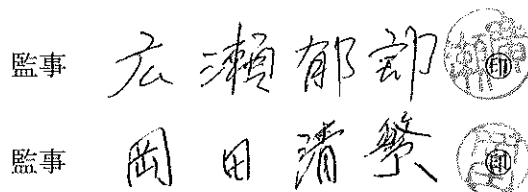 監事 広瀬郁郎 ㊞
監事 岡田清繁 ㊞